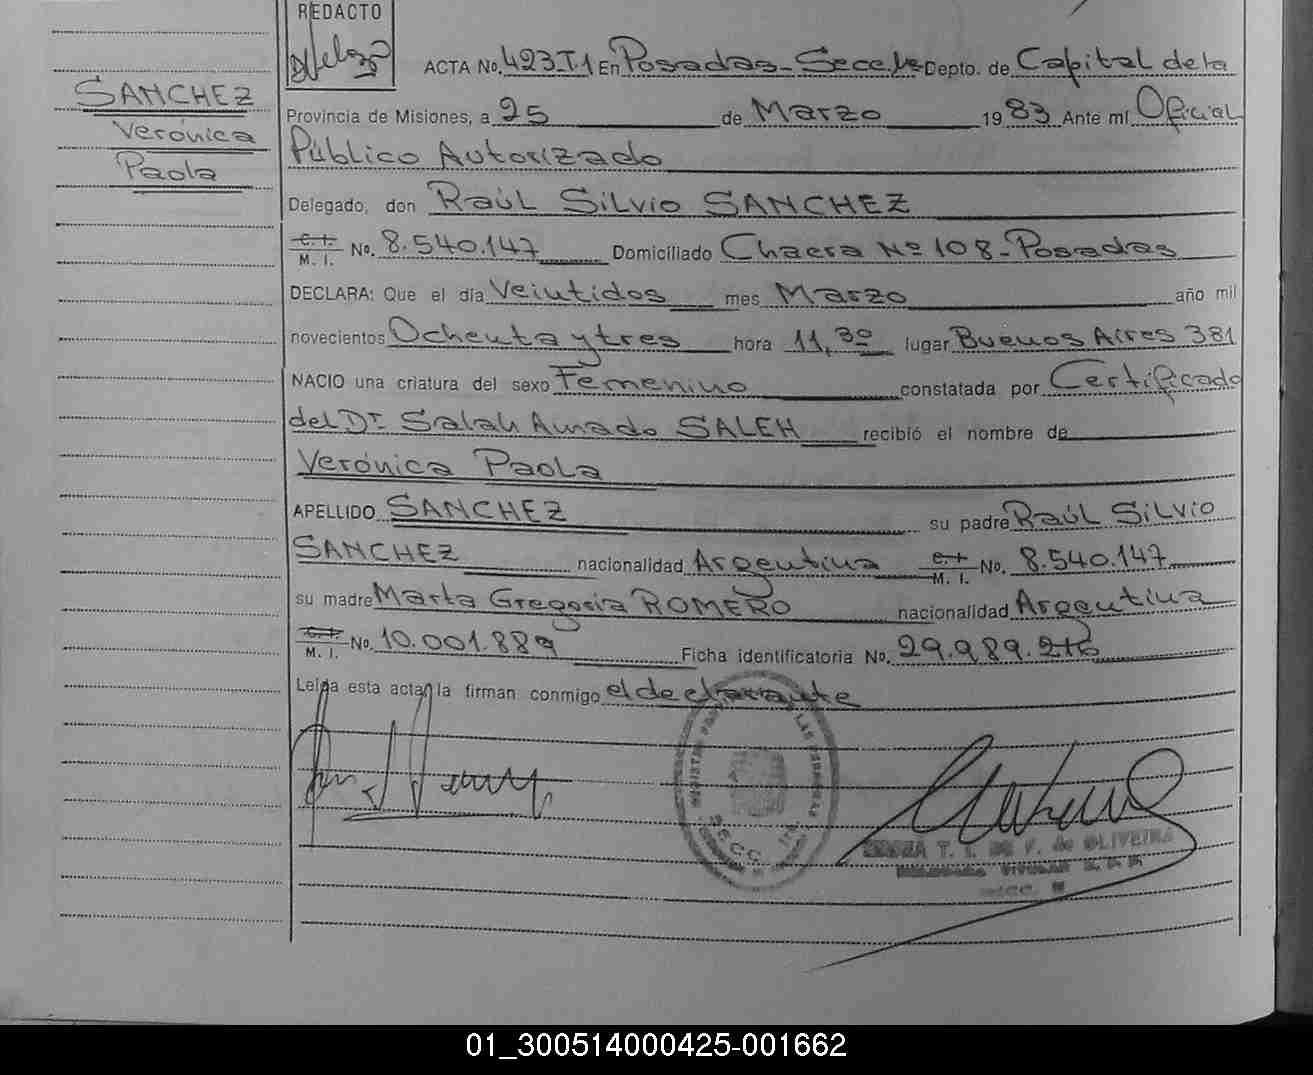 REDACTO
SANCHEZ
Verónica
Paola
ACTA No. 423 T.1 En Posadas - Secc. Depto. de Capital de la
Provincia de Misiones, a 25 de Marzo 1983 Ante mí Oficial
Público Autorizado
Delegado, don Raúl Silvio SANCHEZ
C. I. M. I. No. 8.540.147 Domiciliado Chacra Nº 108 - Posadas
DECLARA: Que el día Veintidos mes Marzo año mil
novecientos Ochenta y tres hora 11,30 lugar Buenos Aires 381
NACIO una criatura del sexo Femenino constatada por Certificado
del Dr. Salah Amado SALEH recibió el nombre de
Verónica Paola
APELLIDO SANCHEZ su padre Raúl Silvio
SANCHEZ nacionalidad Argentina C. I. M. I. No. 8.540.147
su madre Marta Gregoria ROMERO nacionalidad Argentina
C. I. M. I. No. 10.001.889 Ficha identificatoria No. 29.989.216
Leída esta acta la firman conmigo el declarante
SECC.
T. I. DE F. de OLIVEIRA
01_300514000425-001662